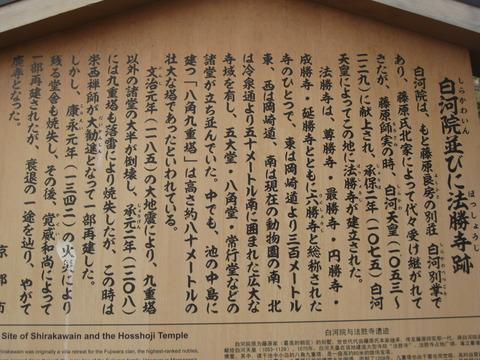 白河院並びに法勝寺跡
しらかわいん
ほっしょうじ
白河院は、もと藤原良房の別荘（白河別業で
あり、藤原氏北家によって代々受け継がれて
きたが、藤原師実の時、白河天皇（一〇五三～
一一二九）に献上され、承保二年（一〇七五）白河
天皇によってこの地に法勝寺が建立された。
法勝寺は、尊勝寺・最勝寺・円勝寺・
成勝寺・延勝寺とともに六勝寺と総称された
寺のひとつで、東は岡崎道より三百メートル
東、西は岡崎道、南は現在の動物園の南、北
は冷泉通より五十メートル南に囲まれた広大な
寺域を有し、五大堂・八角堂・常行堂などの
諸堂が立ち並んでいた。中でも、池の中島に
建つ「八角九重塔」は高さ約八十メートルの
壮大な塔であったといわれている。
文治元年（一一八五）の大地震により、九重塔
以外の諸堂の大半が倒壊し、承元二年（一二〇八）
には九重塔も落雷により焼失したが、この時は
栄西禅師が大勧進となって一部再建した。
しかし、康永元年（一三四二）の火災により
残る堂舎も焼失し、その後、覚威和尚によって
一部再建されたが、衰退の一途を辿り、やがて
廃寺となった。
京都市
Site of Shirakawain and the Hosshoji Temple
Shirakawain was originally a villa retreat for the Fujiwara clan, the highest-ranked nobles.
白河院与法胜寺遗迹